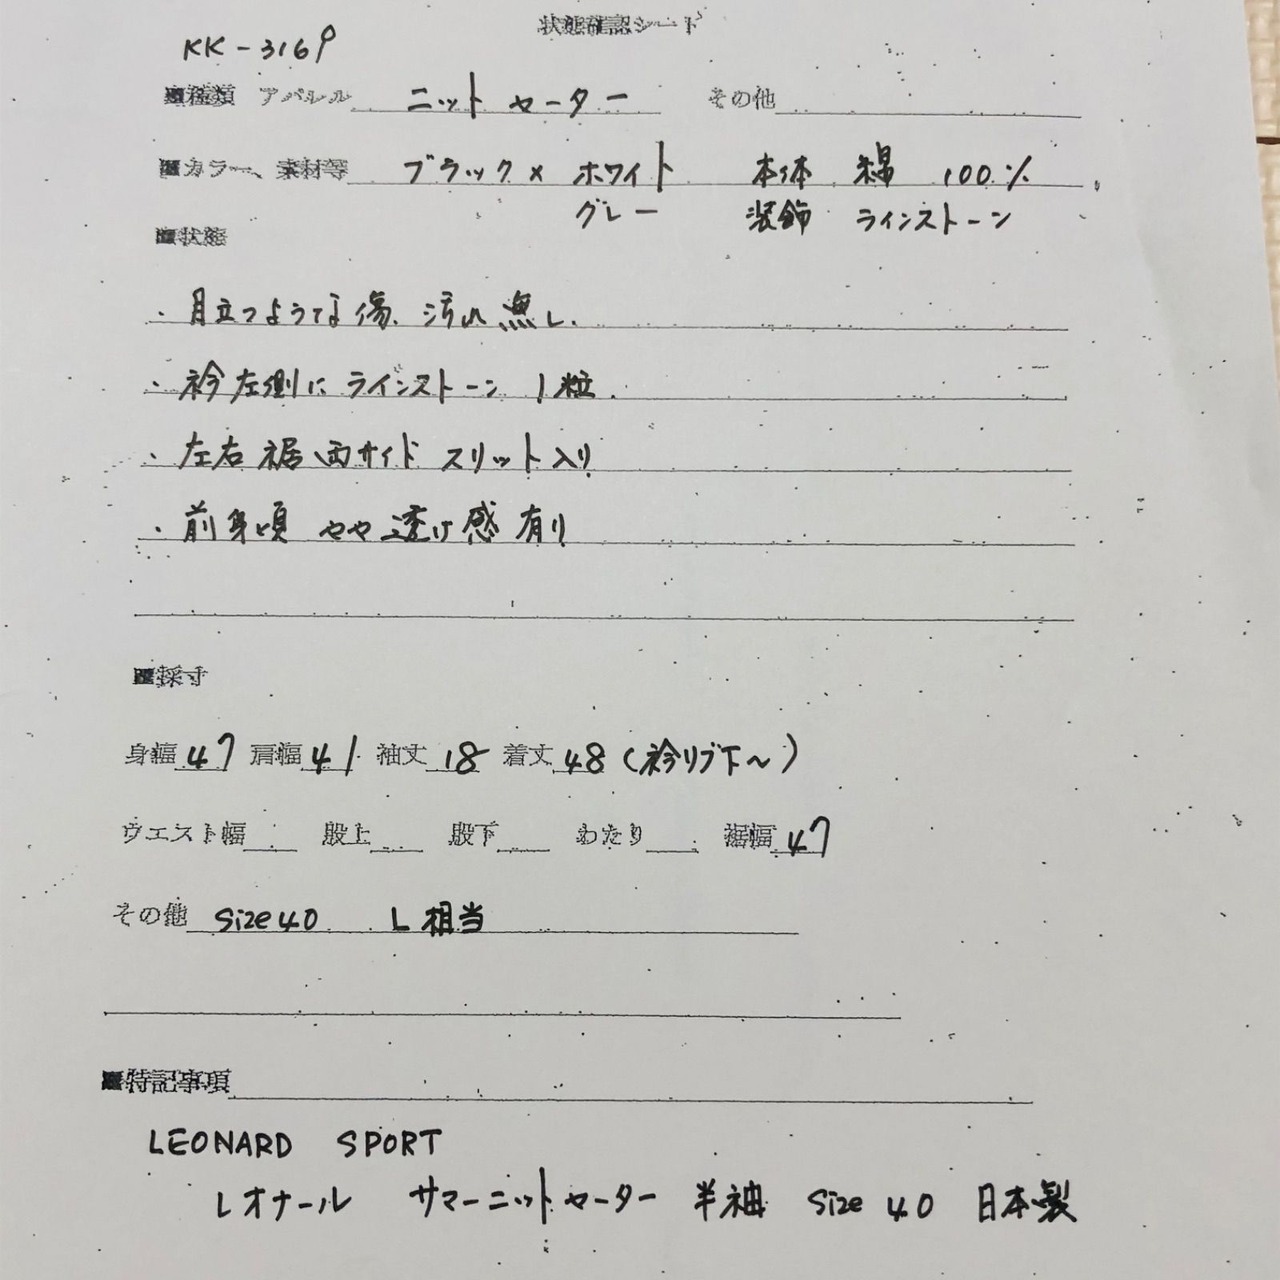 状態確認シート
KK-3169
■種類 アパレル ニットセーター その他
■カラー、素材等 ブラック×ホワイト 本体 綿 100%
グレー 装飾 ラインストーン
■状態
・目立つような傷、汚れ無し.
・衿左側にラインストーン 1粒.
・左右裾両サイド スリット入り
・前身頃 やや透け感有り
■採寸
身幅 47 肩幅 41 袖丈 18 着丈 48 (衿リブ下〜)
ウエスト幅 股上 股下 わたり 裾幅 47
その他 size 40 L相当
■特記事項
LEONARD SPORT
レオナール サマーニットセーター 半袖 size 40 日本製